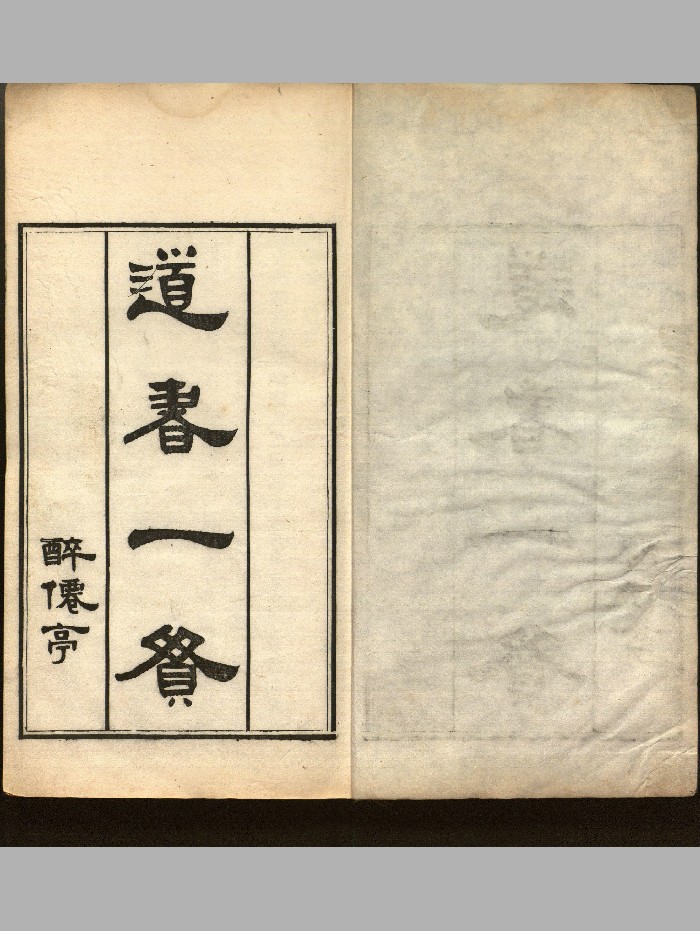 道書一貫
醉僊亭